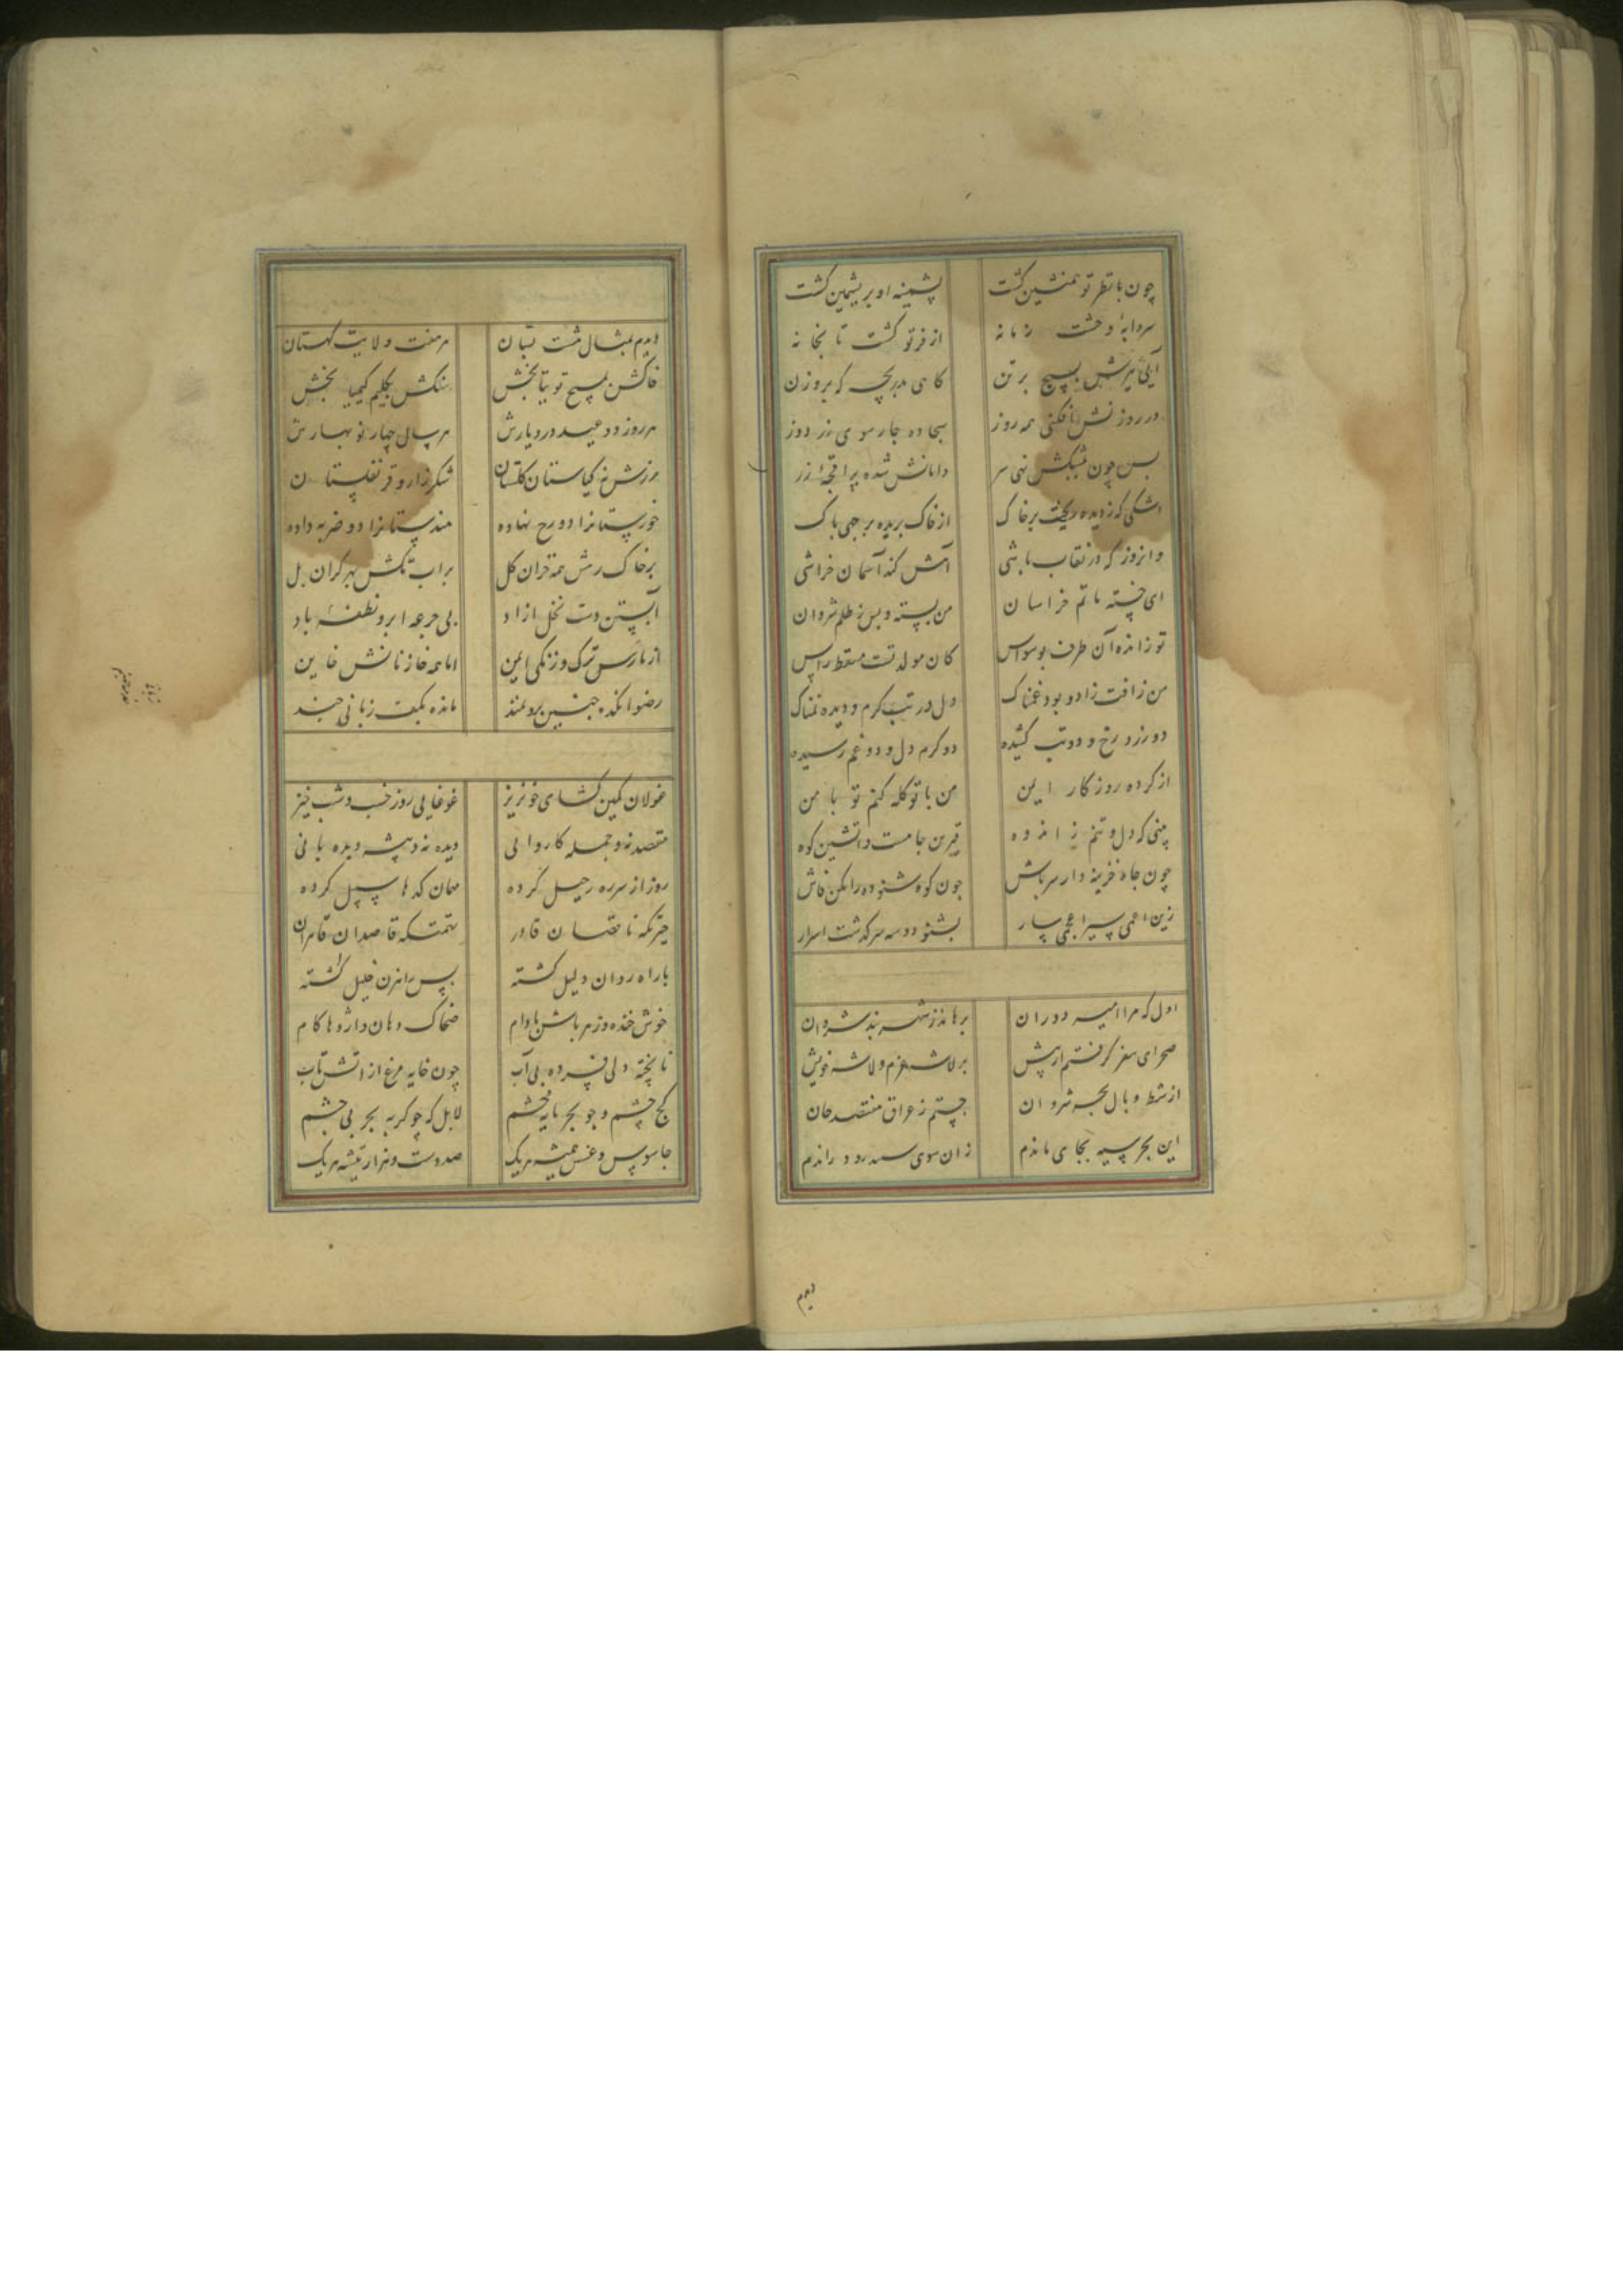 چون با نظر تو همنشین گشت پشمینه او بریشمین گشت
سردابهٔ وحشت زمانه از فر تو گشت تابخانه
آیی تیرش بسیج بر تن کاهی بدریچه که بروزن
در روزنش افکنی همه روز سجاده چارسوی زر دوز
بس چون نهی سر دامانش شده پر اقچهٔ زر
اشکی که ز دیده ریخت بر خاک از خاک بریده برچی پاک
وانروز که در نقاب باشی آهش کند آسمان خراشی
ای خسته ماتم خراسان من بسته و بس ز ظلم شروان
تو زانده آن طرف بوسواس کان مولد تست مسقط راس
من زافت زاد و بود غمناک دل در تب گرم و دیده نمناک
دو زرد رخ و دو تب کشیده دو گرم دل و دو غم رسیده
از کرده روزگار ایمن من با تو گله کنم تو با من
بینی که دل و تنم ز اندوه قیرین جامست و آتشین کوه
چون جاه خزینه دار سر باش چون کوه شنوده را مکن فاش
زین اعمی بشنو دو سه سرگذشت اسرار
اول که مرا امید دوران برهاند ز شهر بند شروان
صحرای سفر گرفتم از پیش بر لاشه عزم و لاشه خویش
از شط وبال لجه شروان جستم ز عراق منقصد جان
این بحر سیه بجای ماندم زان سوی سپید رود راندم
دیدم
دیدم بمثال هشت بستان هر هفت ولایت کهستان
خاکش بمسیح توتیا بخش سنگش بکلیم کیمیا بخش
هر روز دو عید در دیارش هر سال چهار نو بهارش
مرزش نه گیاستان گلستان شکرزار و قرنفلستان
خوزستانرا دو رخ نهاده هندستانرا دو ضربه داده
بر خاک رهش همه خران گل بر آب تکش بهر کران پل
آبستن دست نخل آزاد بی جرعه ابر و نطفهٔ باد
از پارس ترک و زنگی ایمن اما همه خازنانش خاین
رضوانکده چنین برومند مانده بکف زبانی چند
غولان کمین گشای خونریز غوغایی روز خسب و شب خیز
مقصد نه و جمله کاروانی دیده نه و پیشه دیده بانی
روز از سر ره رحیل کرده مهمان کدها سبیل کرده
باراه روان دلیل گشته بس راهزن خلیل گشته
خوش خنده و زهر پاش مادام ضحاک دهان و اژدها کام
ناپخته ولی فسرده بی آب چون خایه مرغ از آتش تاب
کج چشم و چو بحر مایه خشم لابل که چو کربه بحر بی چشم
جاسوس و عسس همیشه هریک صد دست و هزار تیشه هریک